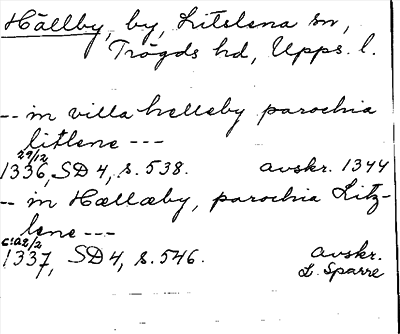 Hällby, by, Litslena sn,
Trögds hd, Upps. l.
-- in villa helleby parochia
litlene ---
29/12
1336, SD 4, s. 538. avskr. 1344
-- in Hællæby, parochia Litz-
lene ---
c:a 2/2
1337, SD 4, s. 546. avskr.
L. Sparre